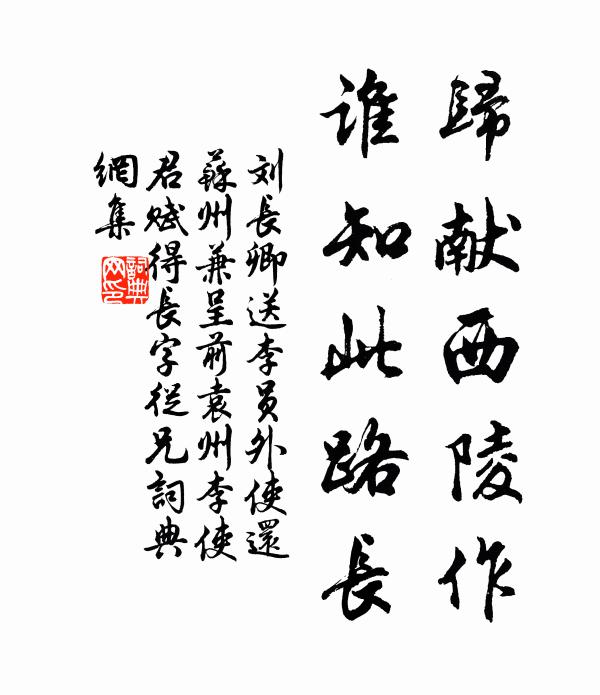 歸献西陵作
谁知此路長
刘長卿送李員外使還
蘇州兼呈前袁州李使
君赋得長字從兄詞典
網集
詞典网印